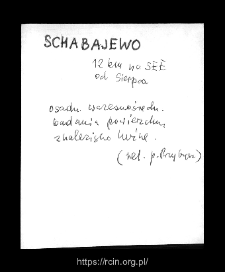 SCHABAJEWO
12 km na SEE
od Sierpca
osada wczesnośredn.
badania powierzchn.
znalezisko luźne.
(zet. p.
https://rcin.org.pl/